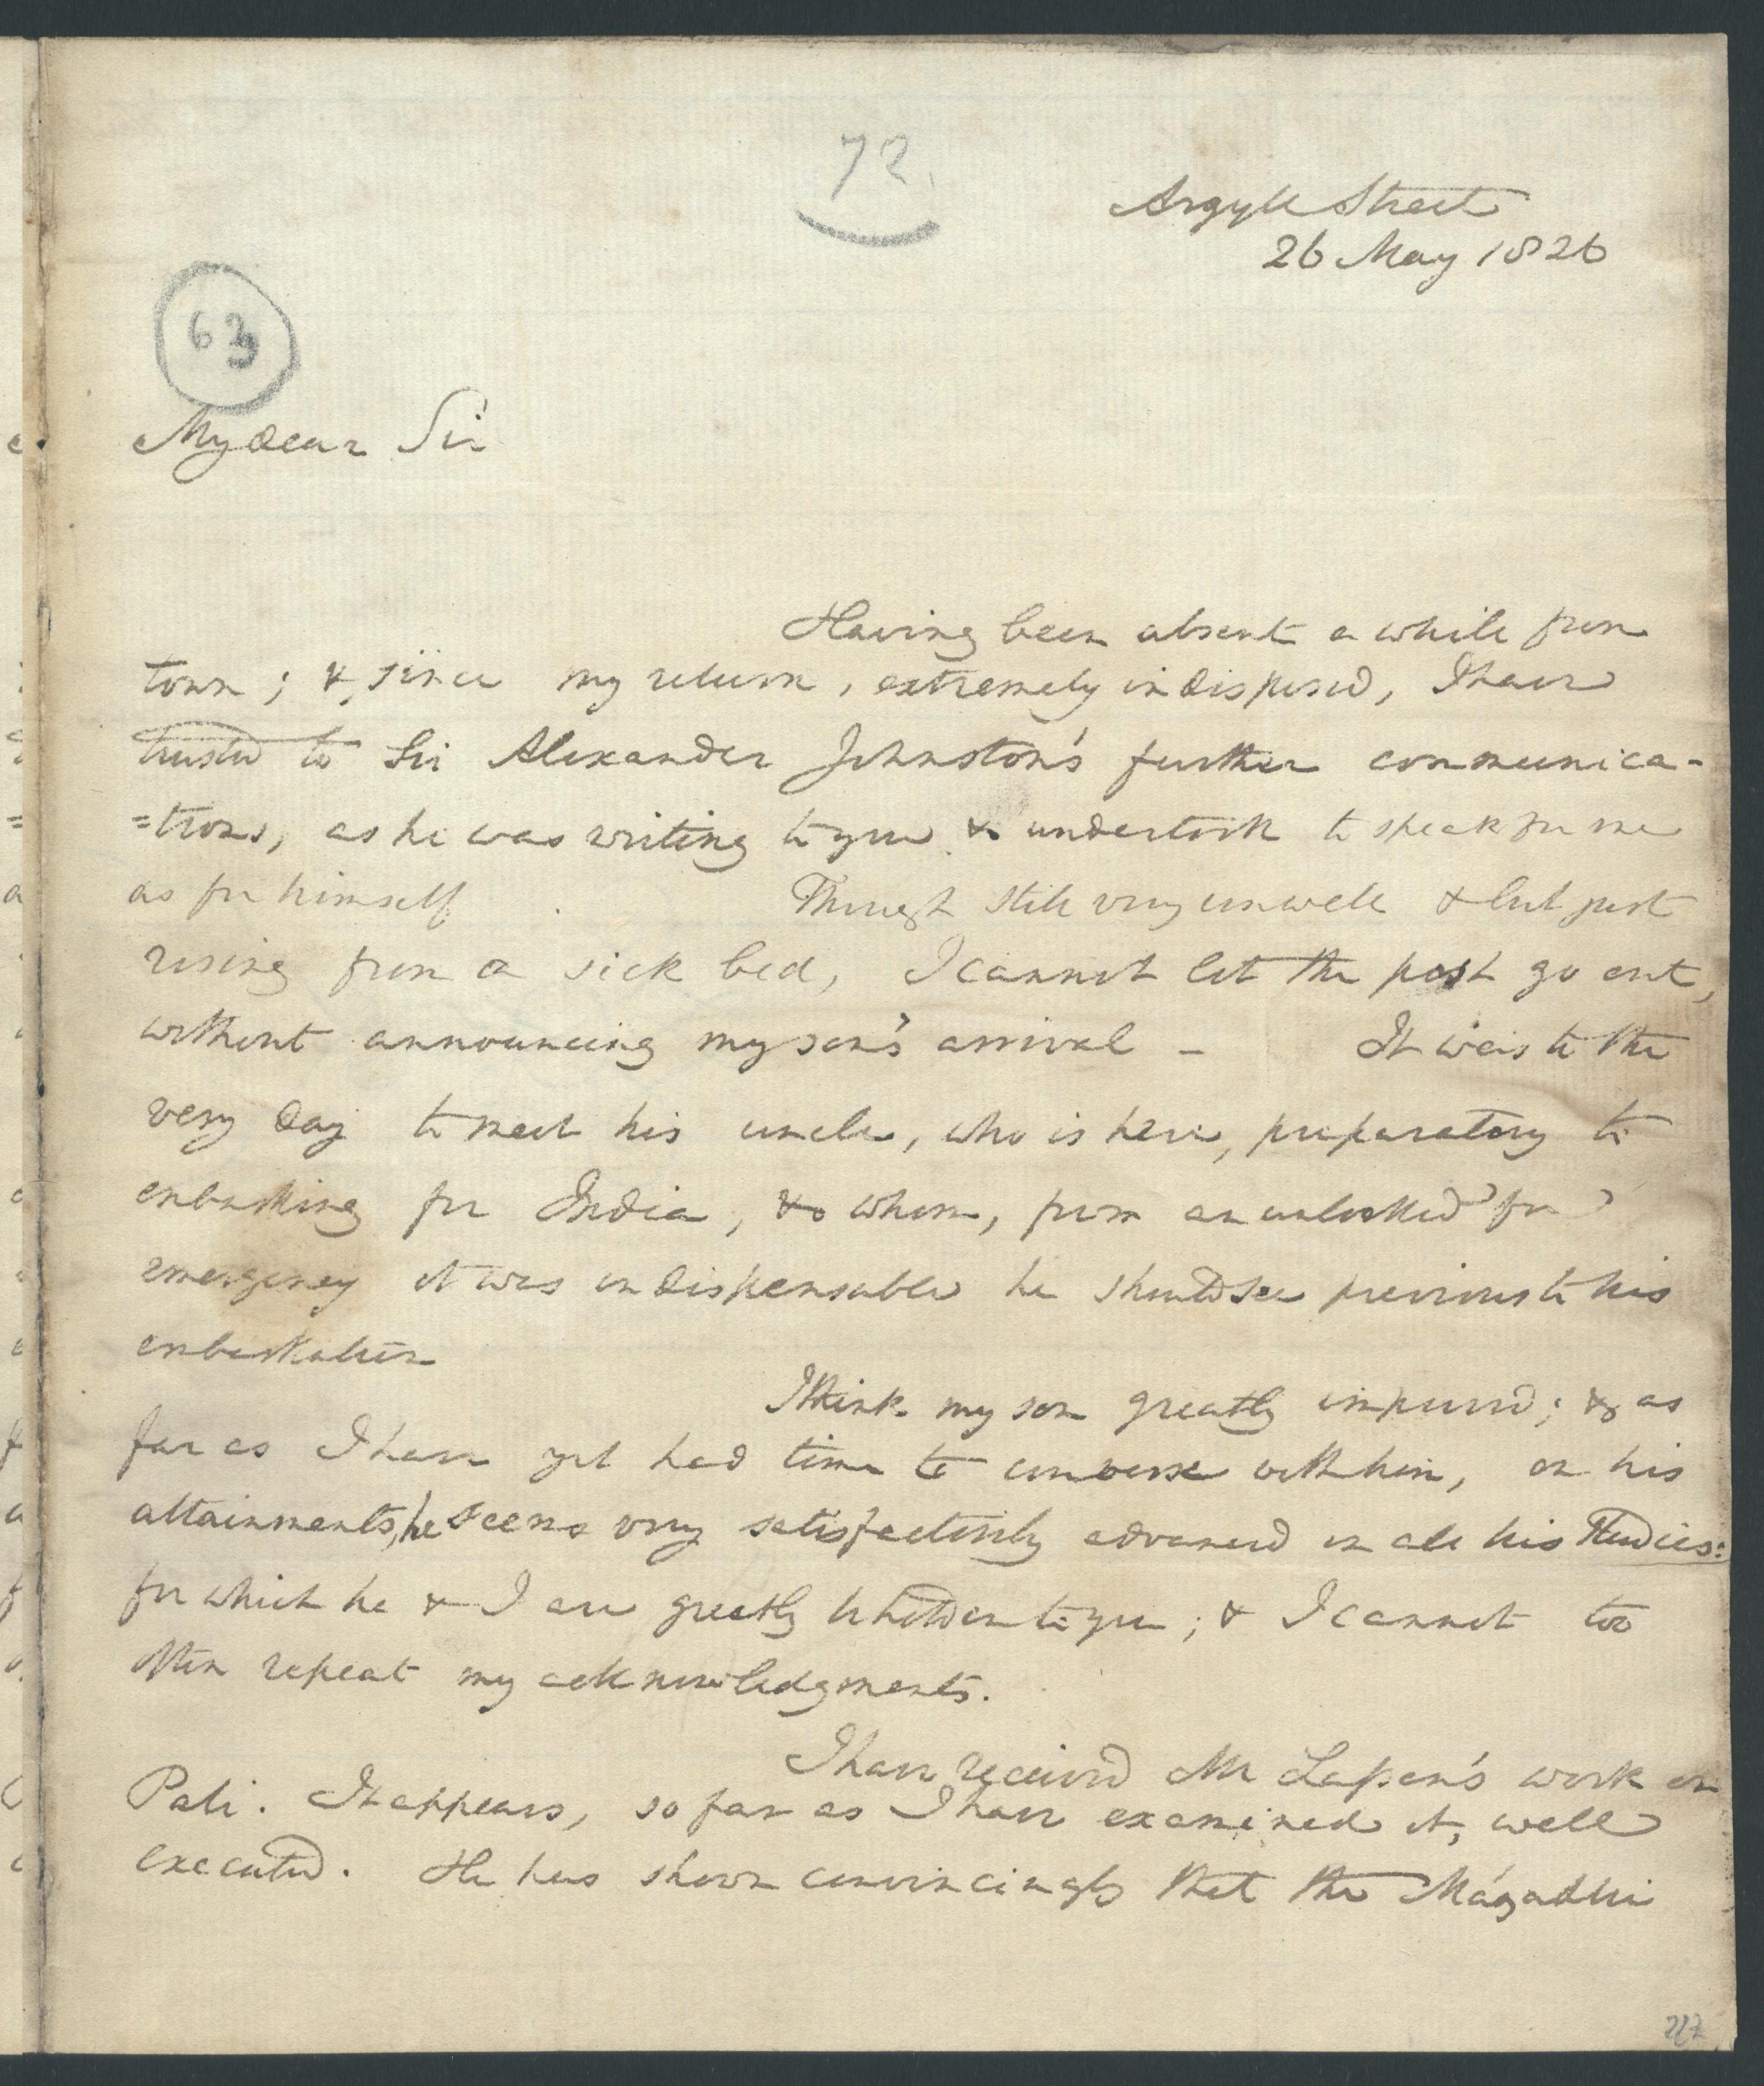 72.
Argyll Street
26 May 1826
63
My dear Sir
Having been absent a while from
town; &, since my return, extremely indisposed, I have
trusted to Sir Alexander Johnston's further communica-
=tions, as he was writing to you & undertook to speak for me
as for himself. Though still very unwell & but just
rising from a sick bed, I cannot let the post go out,
without announcing my son's arrival - It was to the
very day to meet his uncle, who is here, preparatory to
embarking for India, & whom, from an unlooked for
emergency it was indispensable he should see previous to his
embarkation
I think my son greatly improved; & as
far as I have yet had time to converse with him, on his
attainments, he seems very satisfactorily advanced in all his studies:
for which he & I are greatly beholden to you; & I cannot too
often repeat my acknowledgments.
I have received Mr Lassen's work on
Pali. It appears, so far as I have examined it, well
executed. He has shown convincingly that the Mágadhi